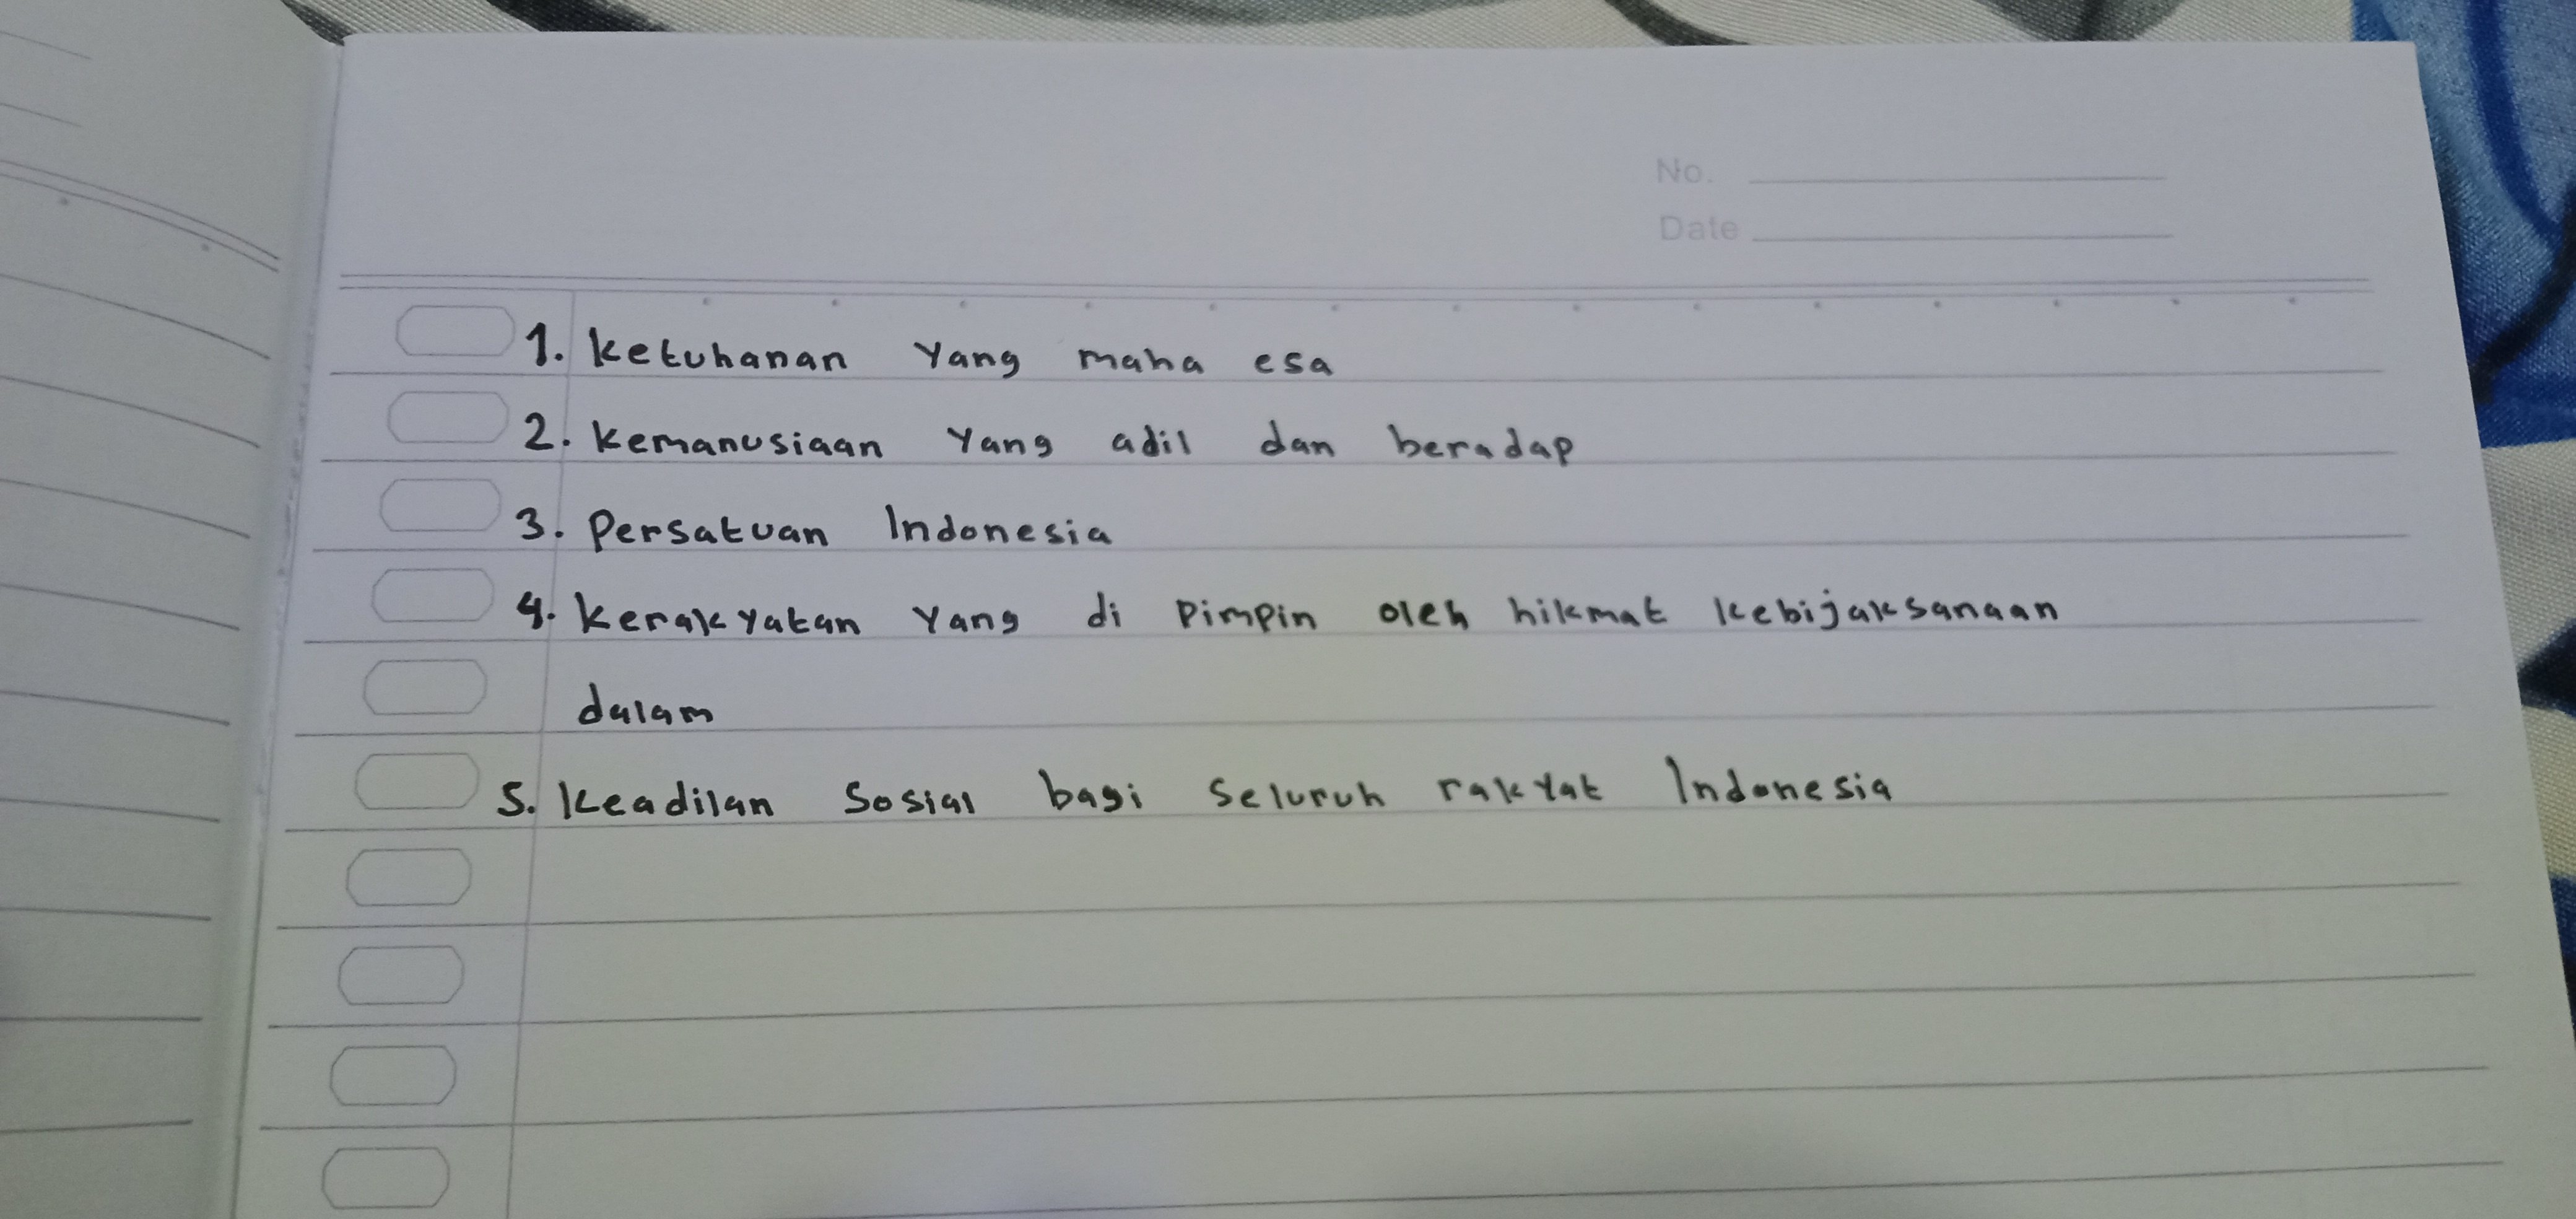 No.
Date
1. Ketuhanan Yang maha esa
2. Kemanusiaan Yang adil dan beradap
3. Persatuan Indonesia
4. Kerakyatan Yang di Pimpin oleh hikmat kebijaksanaan
dalam
5. Keadilan Sosial bagi Seluruh rakyat Indonesia